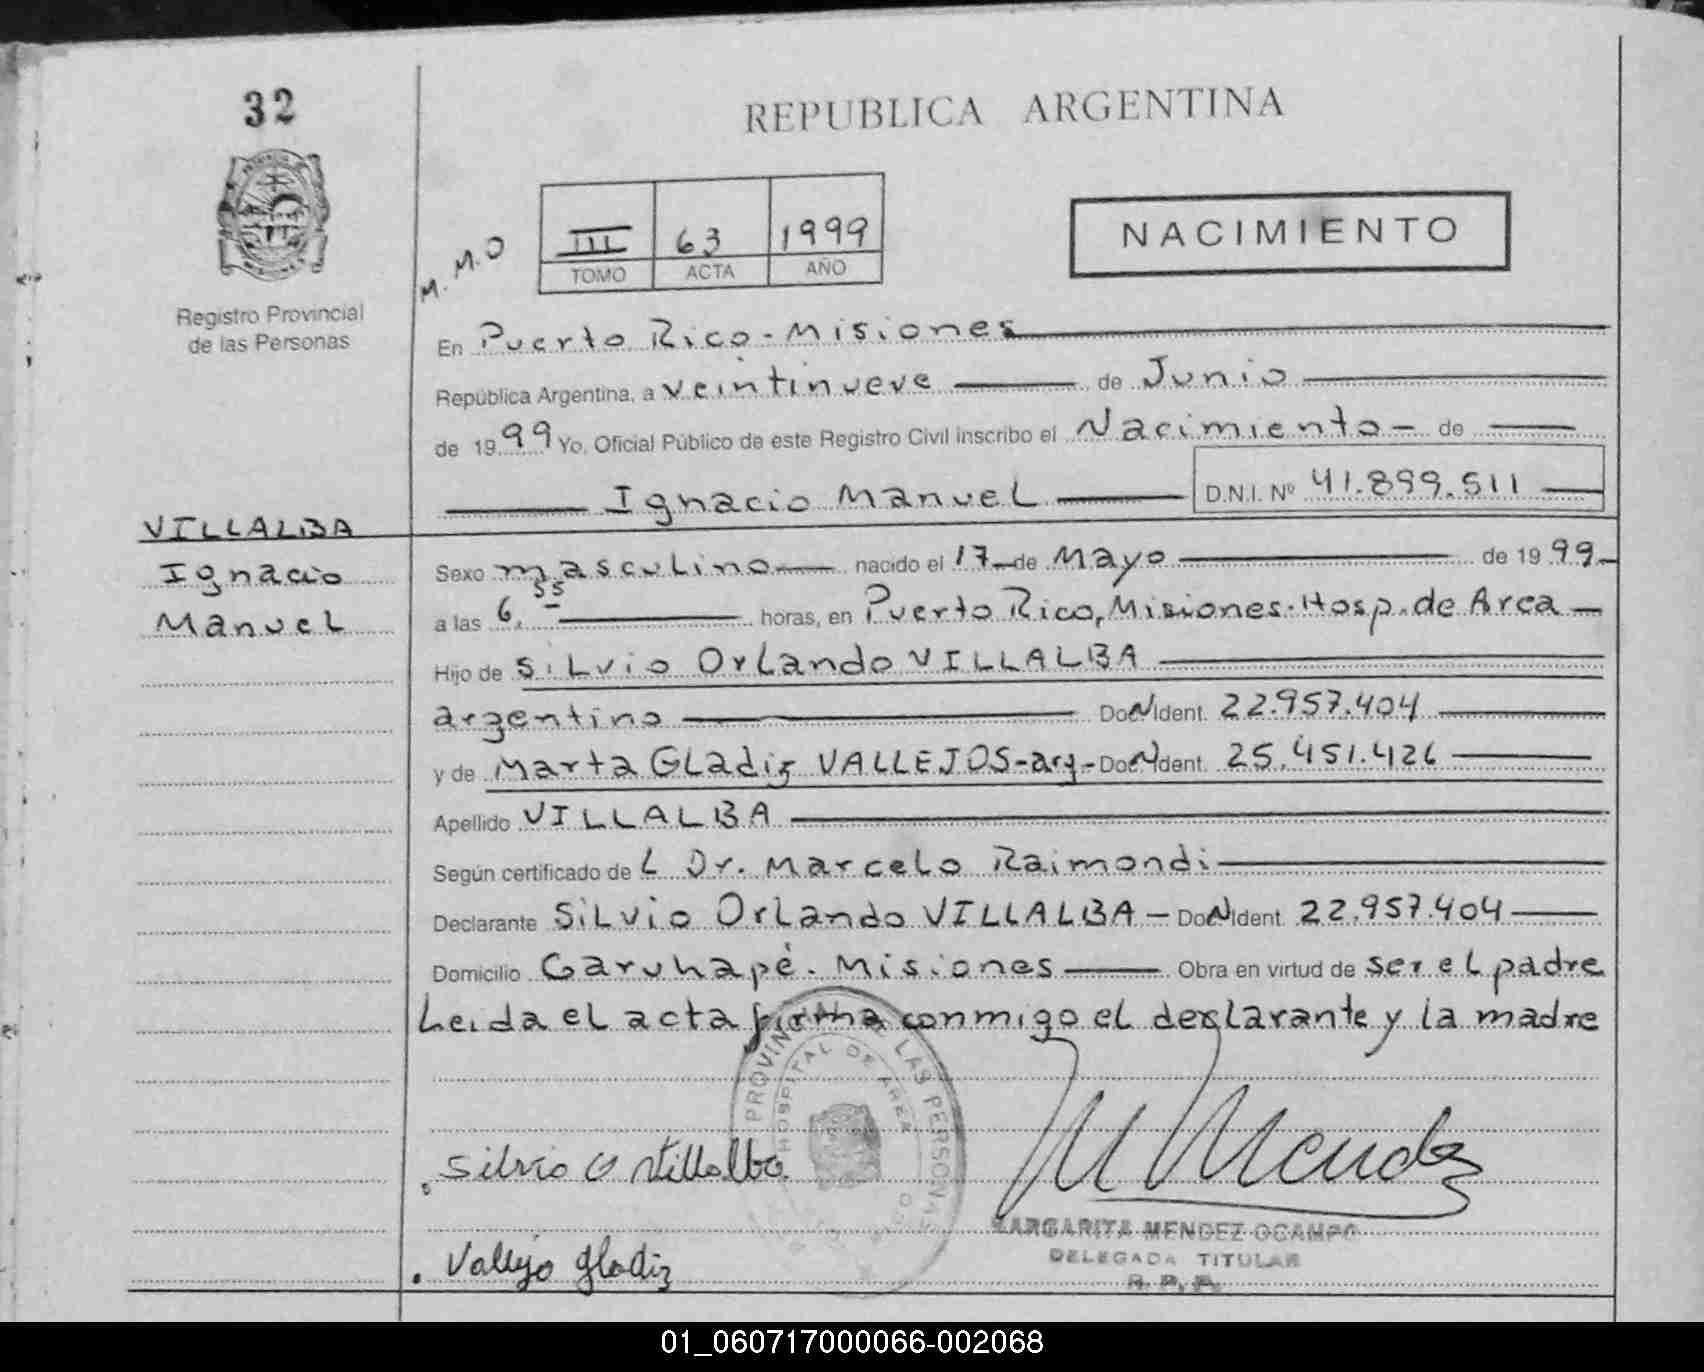 32
REPUBLICA ARGENTINA
M. M. O
III 63 1999
TOMO ACTA AÑO
NACIMIENTO
Registro Provincial
de las Personas
En Puerto Rico - Misiones
República Argentina, a veintinueve de Junio
de 1999 Yo, Oficial Público de este Registro Civil inscribo el Nacimiento - de
Ignacio Manuel D.N.I. Nº 41.899.511
VILLALBA
Ignacio
Manuel
Sexo masculino nacido el 17 de Mayo de 1999
a las 6,55 horas, en Puerto Rico, Misiones. Hosp. de Area
Hijo de Silvio Orlando VILLALBA
argentino Doc. Ident. 22.957.404
y de Marta Gladiz VALLEJOS - arg - Doc. Ident. 25.451.426
Apellido VILLALBA
Según certificado de L Dr. Marcelo Raimondi
Declarante Silvio Orlando VILLALBA - Doc. Ident. 22.957.404
Domicilio Garuhapé. Misiones Obra en virtud de ser el padre
Leida el acta firma conmigo el declarante y la madre
PROVIN LAS PERSONAS
HOSPITAL DE AREA
Silvio O Villalba
M Mendez
MARGARITA MENDEZ OCAMPO
DELEGADA TITULAR
R. P. P.
Vallejo Gladiz
01_060717000066-002068